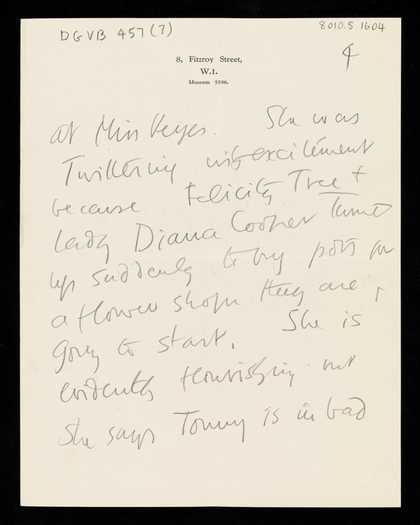 DGVB 457(7)
8010.5 1604
8, Fitzroy Street,
W.1.
Museum
4
at Miss Keyes. She was
Twittering with excitement
because Felicity Tree +
Lady Diana Cooper Turned
up suddenly to buy pots for
a flower shop they are
going to start. She is
evidently flourishing but
she says Tommy is in bad